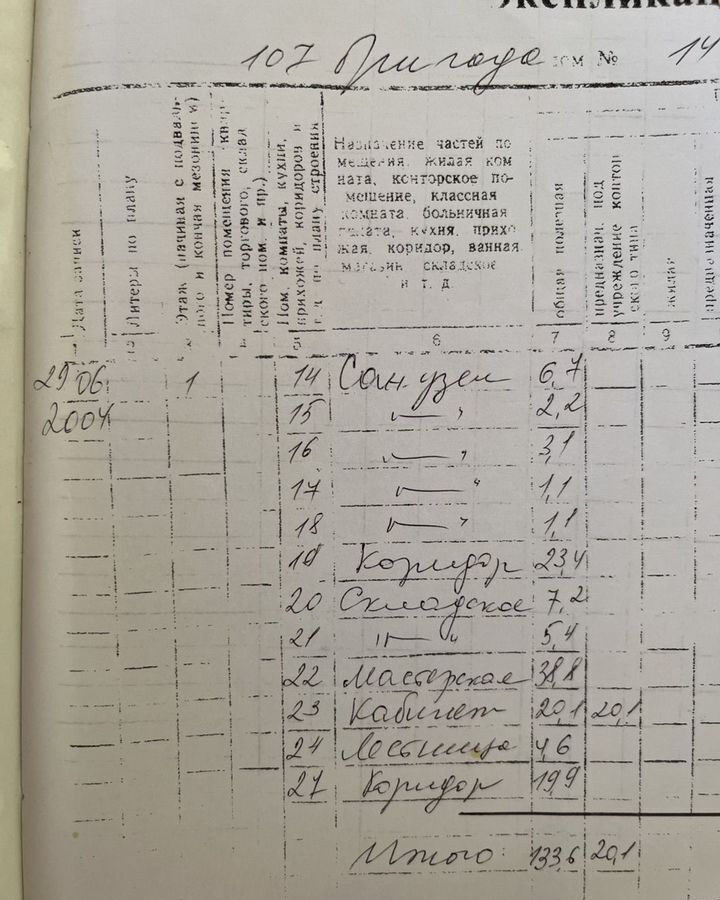 Экспликац
107 Бригада дом № 14
Дата записи
Литеры по плану
Этаж (начиная с подваль
ного и кончая мезонином)
Номер помещения (квар
тиры, торгового, склад
ского пом. и пр.)
Ном. комнаты, кухни,
прихожей, коридоров и
т.д. по плану строения
Назначение частей по
мещения: жилая ком
ната, конторское по-
мещение, классная
комната, больничная
палата, кухня, прихо
жая, коридор, ванная
магазин складское
и т. д.
общая полезная
предназнач. под
учреждение контор
ского типа
жилая
предназначенная
6 7 8 9
29 06. 1 14 Сан.узел 6,7
2004 15 —〃— 2,2
16 —〃— 3,1
17 —〃— 1,1
18 —〃— 1,1
19 Коридор 23,4
20 Складское 7,2
21 —〃— 5,4
22 Мастерская 38,8
23 Кабинет 20,1 20,1
24 Лестница 4,6
27 Коридор 19,9
Итого: 133,6 20,1